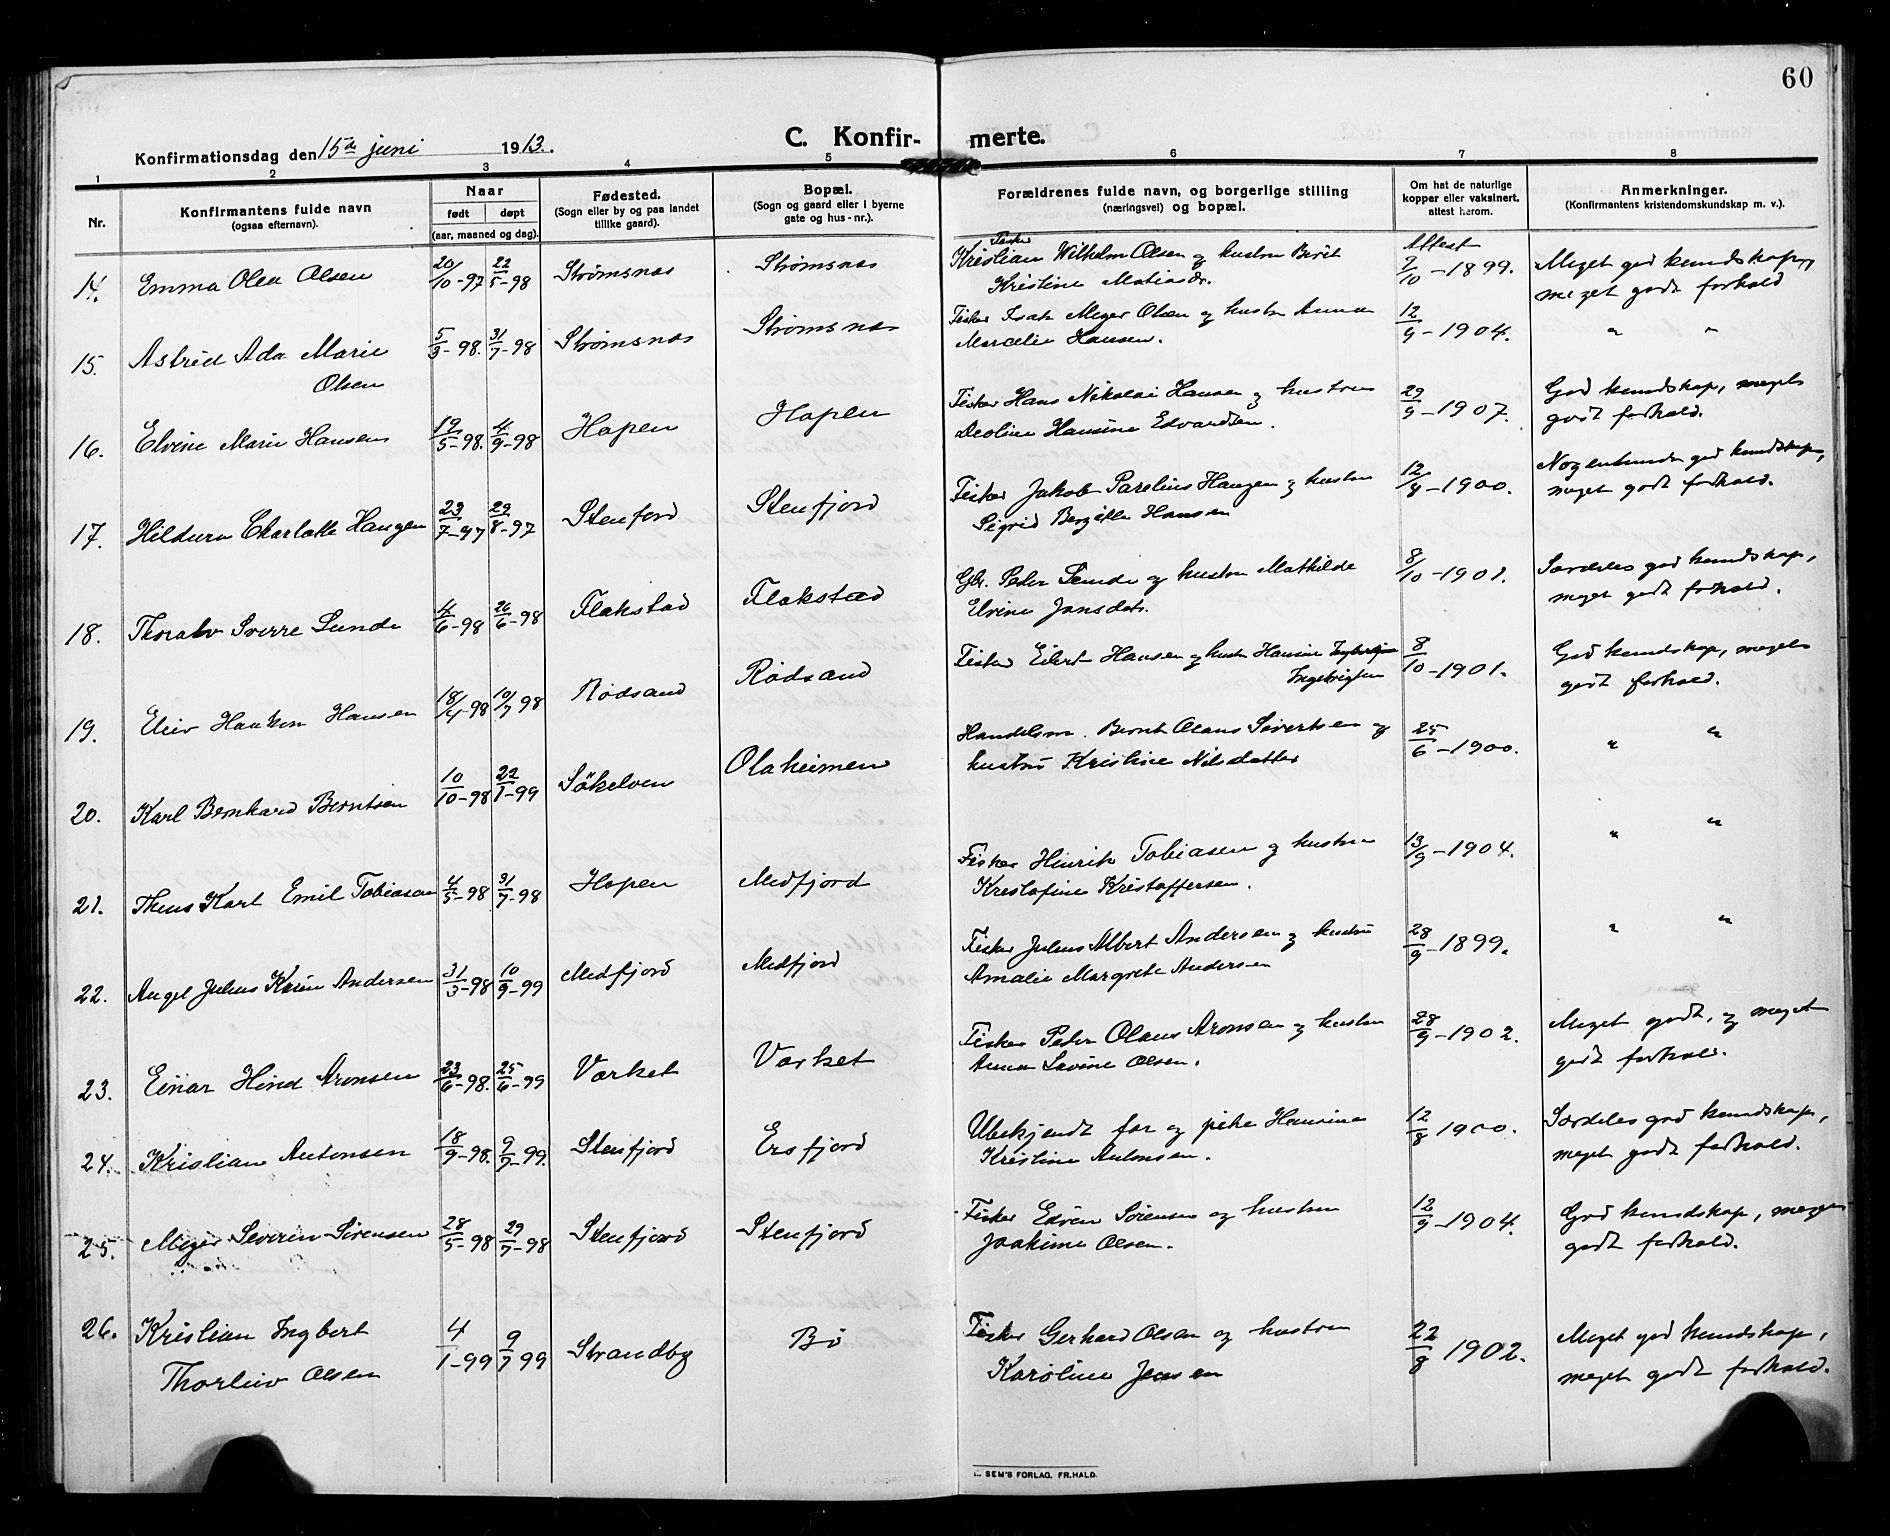 60
Konfirmationsdag den 15de juni 1913.
C. Konfirmerte.
1 2 3 4 5 6 7 8
Nr.
Konfirmantens fulde navn
(ogsaa efternavn).
Naar
født døpt
(aar, maaned og dag).
Fødested.
(Sogn eller by og paa landet
tillike gaard).
Bopæl.
(Sogn og gaard eller i byerne
gate og hus-nr.).
Forældrenes fulde navn, og borgerlige stilling
(næringsvei) og bopæl.
Om hat de naturlige
kopper eller vaksinert,
attest herom.
Anmerkninger.
(Konfirmantens kristendomskundskap m. v.).
14. Emma Olea Olsen 20/10-97 22/5-98 Strømsnæs Strømsnæs Fisker Kristian Wilhelm Olsen og hustru Berit Attest 9/10-1899. Meget god kundskap,
Kristine Matiasdr. meget godt forhold
15. Astrid Ada Marie 5/3-98. 31/7-98 Strømsnæs Strømsnæs Fisker Isak Meyer Olsen og hustru Anna 12/9-1904. " "
Olsen Marcelie Hansen.
16. Elvine Marie Hansen 19/5-98. 4/9-98 Hopen Hopen Fisker Hans Nikolai Hansen og hustru 29/9-1907. God kundskap, meget
Deoline Hansine Edvardsen. godt forhold.
17. Hildura Charlotte Haugen 23/7-97 29/8-97 Stenfjord Stenfjord Fisker Jakob Parelius Haugen og hustru 12/8-1900. Nogenlunde god kundskap,
Sigrid Bergitte Hansen meget godt forhold.
18. Thoralv Sverre Sunde 4/6-98 26/6-98 Flakstad Flakstad Gbr. Peder Sunde og hustru Mathilde 8/10-1901. Særdeles god kundskap,
Elvine Jansdatr. meget godt forhold.
19. Eliev Haakon Hansen 18/4-98 10/7-98 Rødsand Rødsand Fisker Eilert Hansen og hustr. Hansine 8/10-1901. God kundskap, meget
Ingebrigtsen godt forhold.
20. Karl Bernhard Berntsen 10/10-98 22/1-99 Søkelven Olaheimen Handelsm. Bernt Olaus Sivertsen og 25/6-1900. " "
hustru Kristine Nilsdatter
21. Theus Karl Emil Tobiasen 4/5-98 31/7-98 Hopen Medfjord Fisker Hinrik Tobiasen og hustru 13/9-1904. " "
Krestofine Kristoffersen.
22. Angel Julius Andersen 31/3-98 10/9-99 Medfjord Medfjord Fisker Julius Albert Andersen og hustru 28/9-1899. " "
Amalie Margrete Andersen
23. Einar Hind Aronsen 23/6-98. 25/6-99 Varket Varket Fisker Peder Olaus Aronsen og hustru 28/9-1902. Meget godt, og meget
Anna Lovine Olsen. godt forhold.
24. Kristian Antonsen 18/9-98. 9/7-99. Stenfjord Ersfjord Ubekjendt far og pike Hansina 12/8 1900. Særdeles god kundskap,
Kristine Antonsen. meget godt forhold.
25. Meyer Severin Sørensen 28/5-98 29/7-98 Stenfjord Stenfjord Fisker Edvin Sørensen og hustru 12/9-1904. God kundskap, meget
Joakime Olsen. godt forhold.
26. Kristian Ingbert 4/1-99 9/7 99 Strandby Bø Fisker Gerhard Olsen og hustru 22/8 1902. Meget god kundskap,
Thorleiv Olsen Karoline Jensen meget godt forhold.
SEM'S FORLAG, FR.HALD.